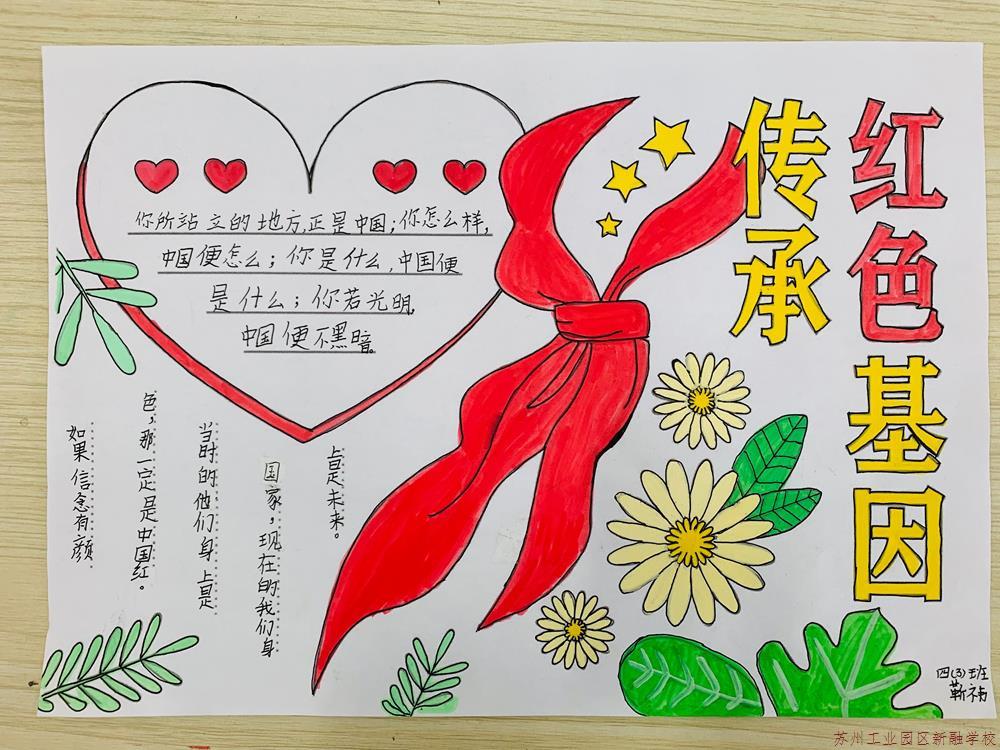 红色基因
传承
你所站立的地方,正是中国;你怎么样,
中国便怎么;你是什么,中国便
是什么;你若光明,
中国便不黑暗。
如果信念有颜
色,那一定是中国红。
当时的他们身上是
国家,现在的我们身
上是未来。
四(3)班
苏州工业园区新融学校